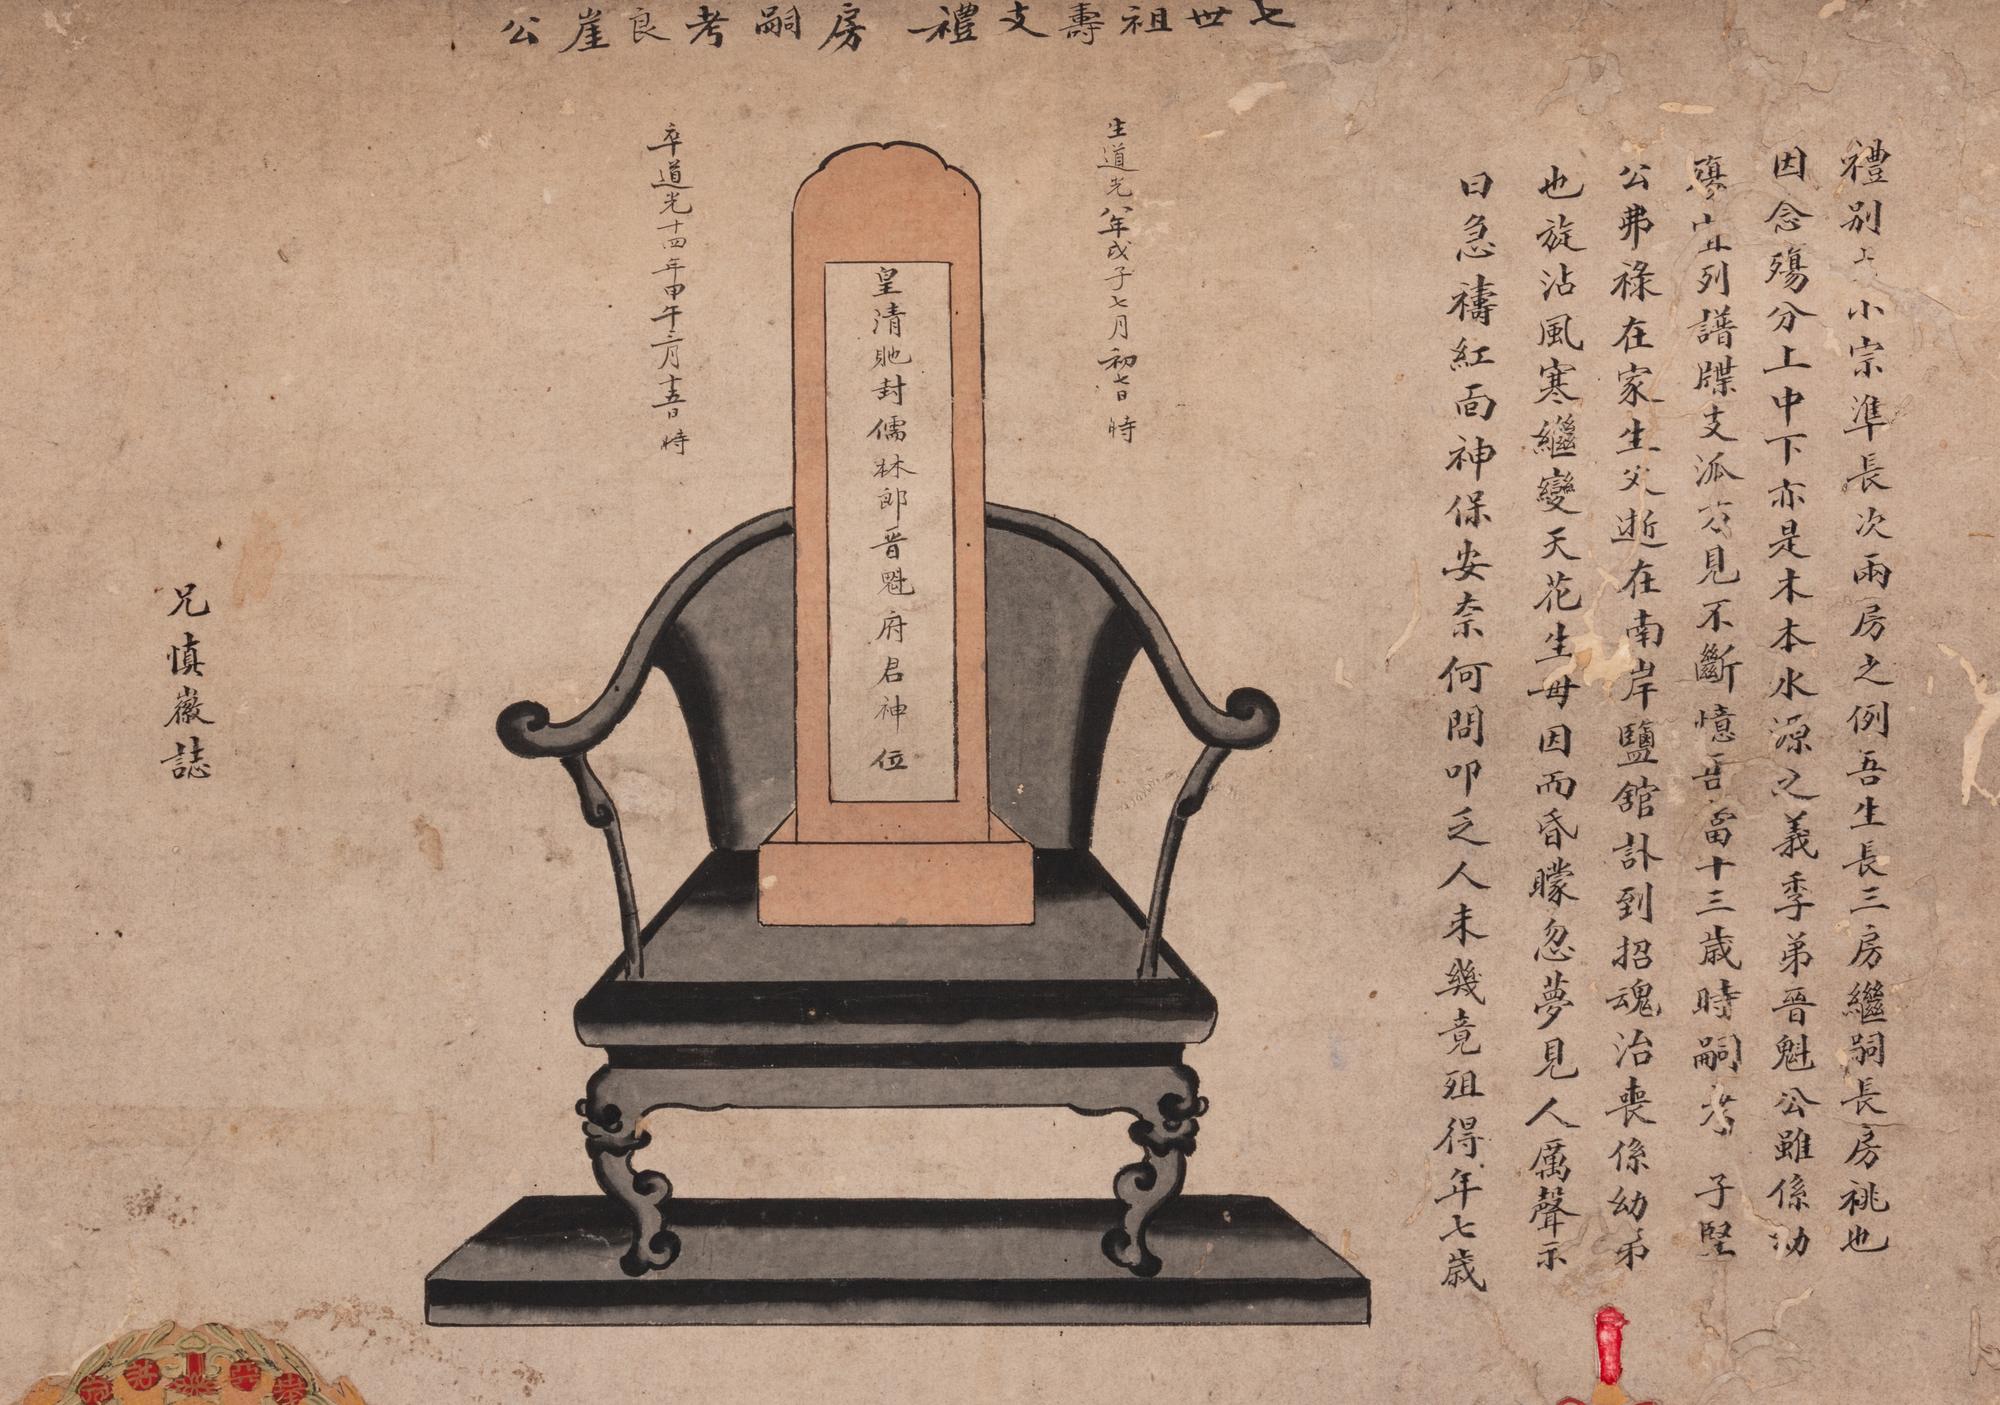 七世祖壽支禮房嗣考良崖公
禮別大小宗準長次兩房之例吾生長三房繼嗣長房祧也
因念殤分上中下亦是木本水源之義季弟晉魁公雖係幼
殤 列譜牒支派方見不斷憶吾當十三歲時嗣考 子堅
公弗祿在家生父逝在南岸鹽舘訃到招魂治喪係幼弟
也旋沾風寒繼變天花生毋因而昏矇忽夢見人厲聲示
曰急禱紅面神保安奈何問叩乏人未幾竟殂得年七歲
生道光八年戊子七月初七日 時
皇清貤封儒林郎晉魁府君神位
卒道光十四年甲午二月十五日 時
兄慎徽誌